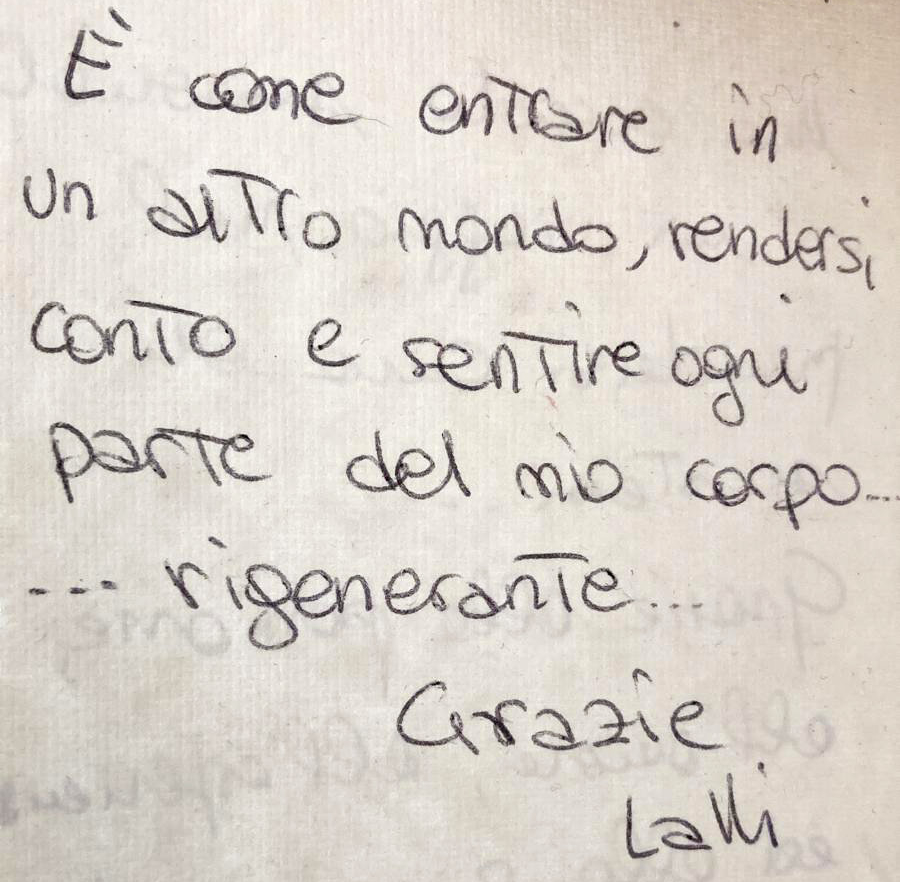 È come entrare in
un altro mondo, rendersi
conto e sentire ogni
parte del mio corpo...
... rigenerante...
Grazie
Lalli